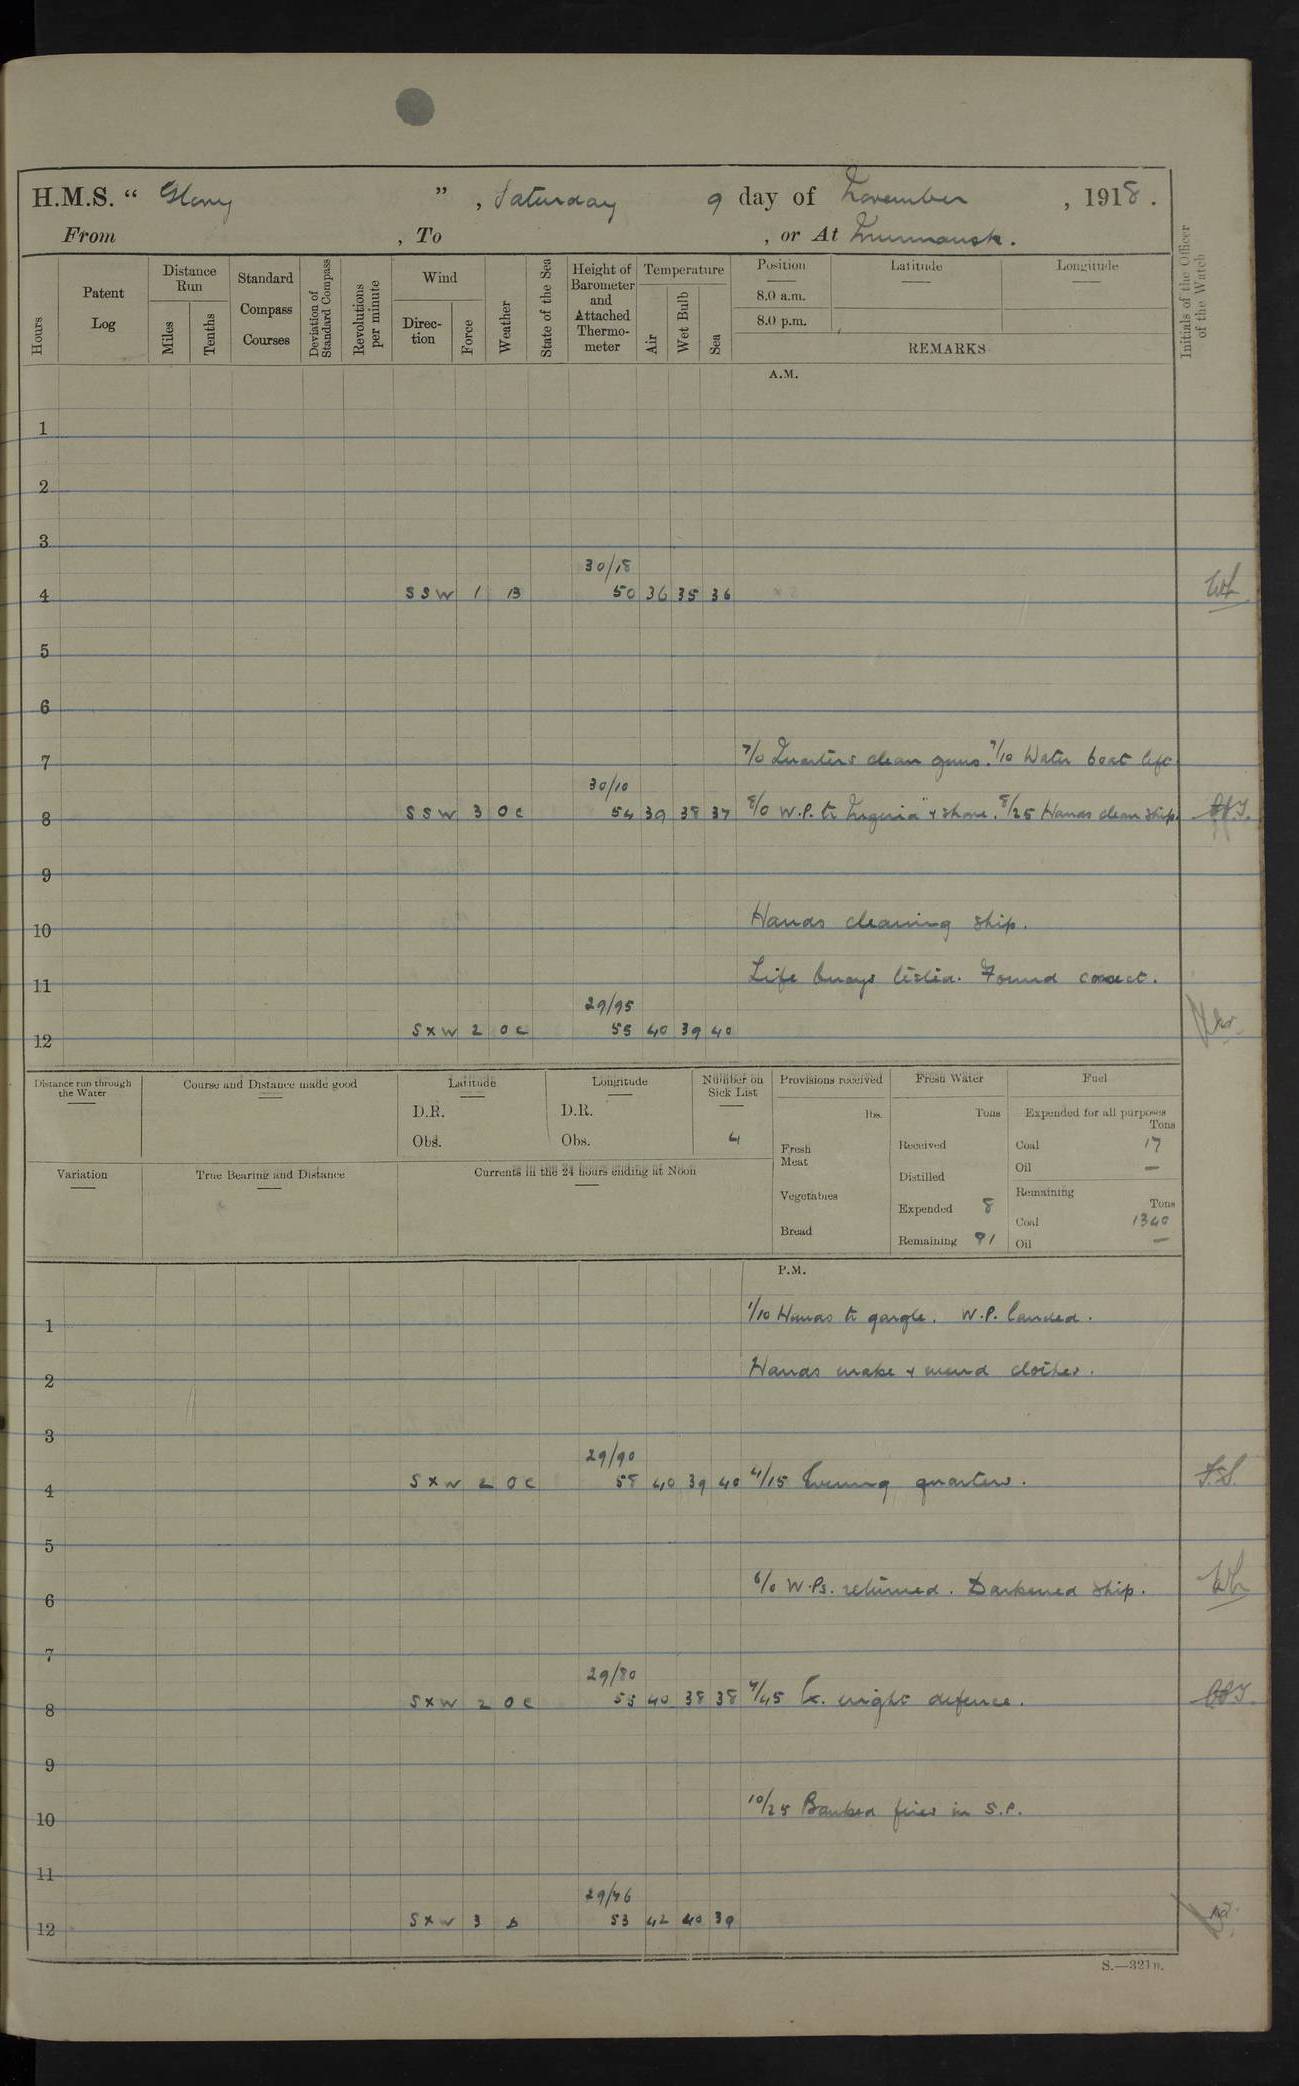 H.M.S. “ Glory ”, Saturday 9 day of November, 1918.
From , To , or At Murmansk.
Hours
Patent Log
Distance Run
Miles
Tenths
Standard Compass Courses
Deviation of Standard Compass
Revolutions per minute
Wind
Direction
Force
Weather
State of the Sea
Height of Barometer and Attached Thermometer
Temperature
Air
Wet Bulb
Sea
Position
8.0 a.m.
8.0 p.m.
Latitude
Longitude
REMARKS
Initials of the Officer of the Watch
A.M.
1
2
3
30/18
4 SSW 1 B 50 36 35 36
5
6
7 7/0 Quarters clean guns. 7/10 Water boat left
30/10
8 SSW 3 OC 54 39 38 37 8/0 W.P. to Nigeria" & shore. 8/25 Hands clean ship.
9
10 Hands cleaning ship.
11 Life buoys tested. Found correct.
29/95
12 SxW 2 OC 55 40 39 40
Distance run through the Water
Course and Distance made good
Latitude
D.R.
Obs.
Longitude
D.R.
Obs.
Number on Sick List
4
Provisions received
lbs.
Fresh Meat
Vegetables
Bread
Fresh Water
Tons
Received
Distilled
Expended 8
Remaining 91
Fuel
Expended for all purposes
Tons
Coal 17
Oil —
Remaining
Tons
Coal 1340
Oil —
Variation
True Bearing and Distance
Currents in the 24 hours ending at Noon
P.M.
1 1/10 Hands to gargle. W.P. landed.
2 Hands make & mend clothes.
3
29/90
4 SxW 2 OC 58 40 39 40 4/15 Evening quarters.
5
6 6/0 W.Ps. returned. Darkened ship.
7
29/80
8 SxW 2 OC 55 40 38 38 7/45 Ex. night defence.
9
10 10/25 Banked fires in S.P.
11
29/76
12 SxW 3 53 42 40 39
S.—321n.